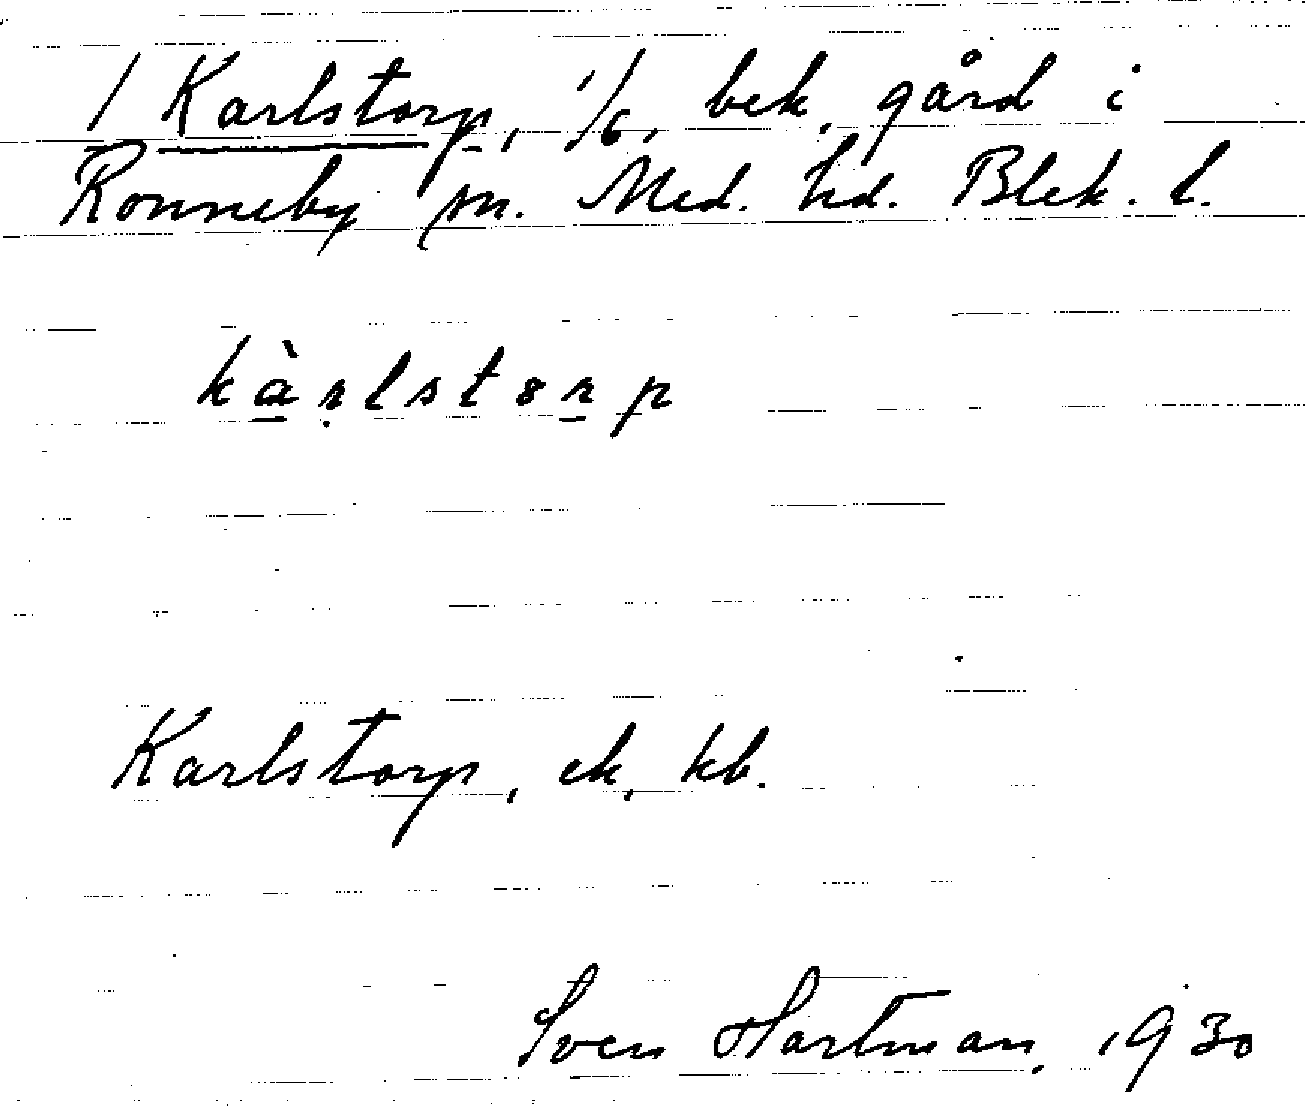 1 Karlstorp, 1/6, bek. gård i
Ronneby sn. Med. hd. Blek. l.
kàrlstorp
Karlstorp, ek. kb.
Sven Hartman, 1930